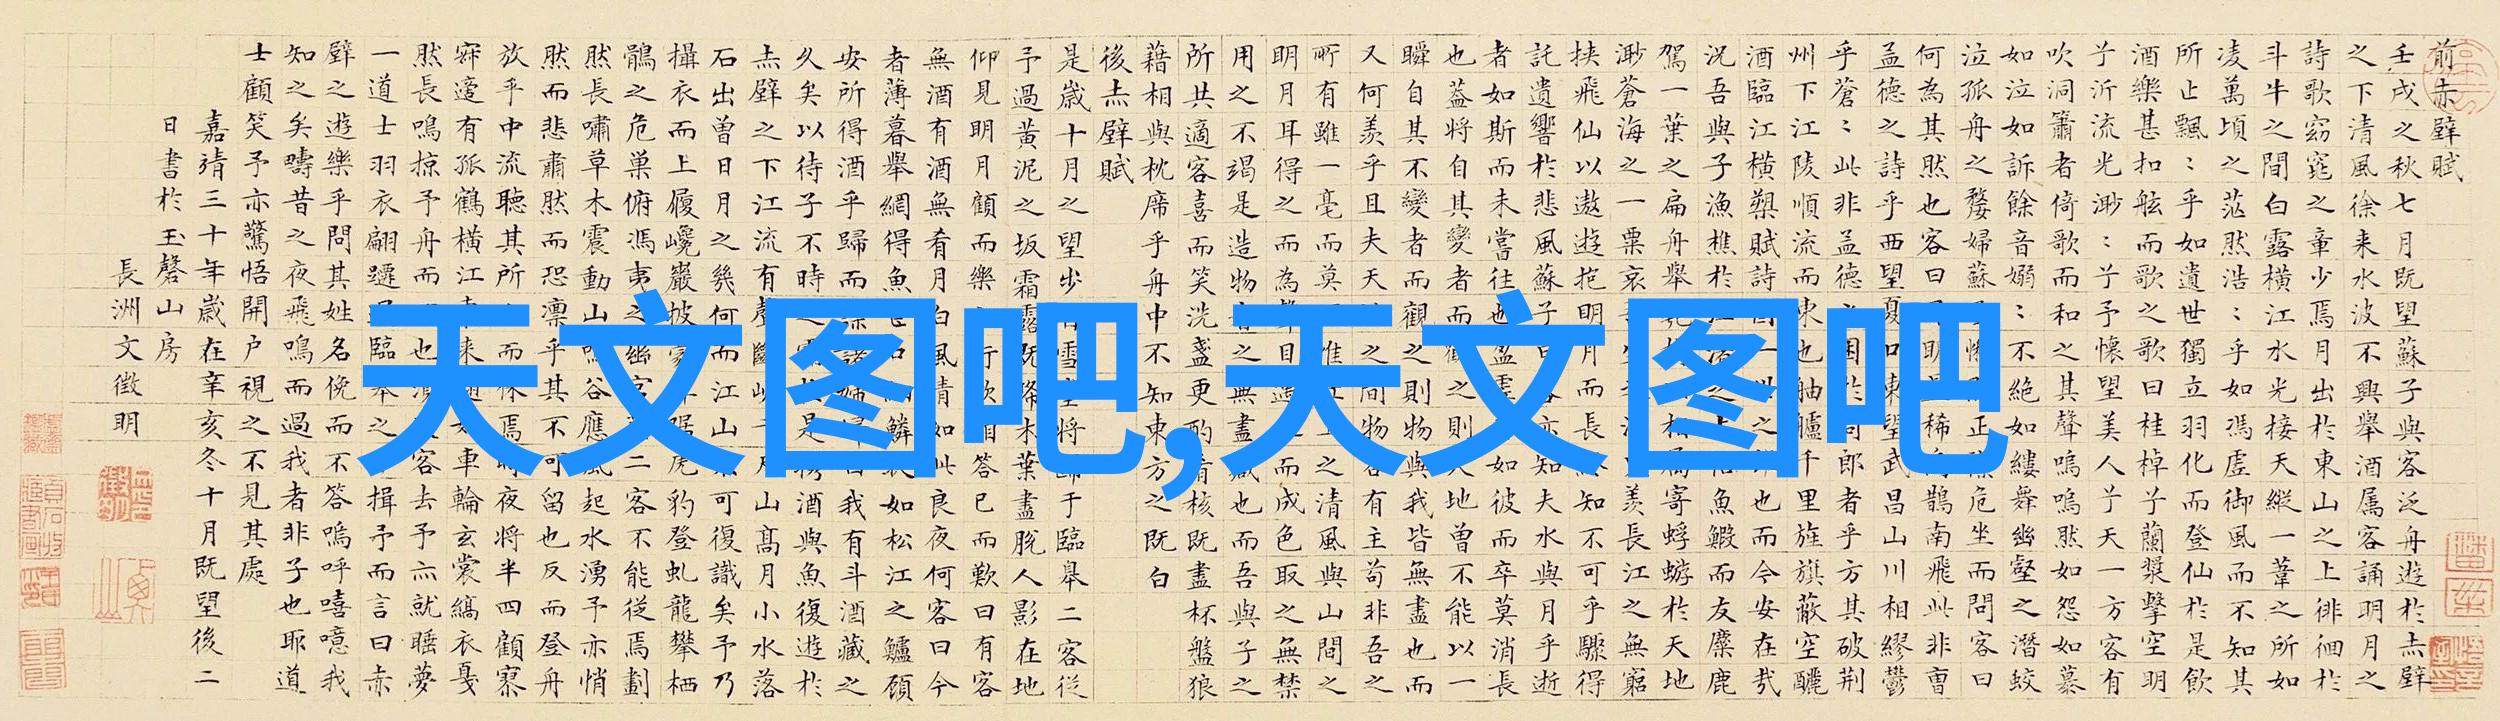 前赤壁賦
壬戌之秋七月既望蘇子與客泛舟遊於赤壁
之下清風徐来水波不興舉酒属客誦明月之
詩歌窈窕之章少焉月出於東山之上徘徊於
斗牛之間白露橫江水光接天縱一葦之所如
凌萬頃之茫然浩〻乎如馮虛御風而不知其
所止飄〻乎如遺世獨立羽化而登仙於是飲
酒樂甚扣舷而歌之歌曰桂棹兮蘭槳擊空明
兮泝流光渺〻兮予懷望美人兮天一方客有
吹洞簫者倚歌而和之其聲嗚嗚然如怨如慕
如泣如訴餘音嫋〻不絶如縷舞幽壑之潛蛟
泣孤舟之嫠婦蘇正危坐而問客曰
何為其然也客曰明稀鵲南飛此非曹
孟德之詩乎西望夏口東望武昌山川相繆鬱
乎蒼〻此非孟德之困於郎者乎方其破荆
州下江陵順流而東也舳艫千里旌旗蔽空釃
酒臨江橫槊賦詩一之也而今安在哉
況吾與子漁樵於江之魚鰕而友麋鹿
駕一葉之扁舟舉相屬寄蜉蝣於天地
渺蒼海之一粟哀羨長江之無窮
挾飛仙以遨遊抱明月而長知不可乎驟得
託遺響於悲風蘇子亦知夫水與月乎逝
者如斯而未嘗往也盈如彼而卒莫消長
也蓋將自其變者而之則天地曾不能以一
瞬自其不變者而觀之則物與我皆無盡也而
又何羨乎且夫天之間物有主苟非吾之
所有雖一毫而莫惟之清風與山間之
明月耳得之而為聲目而成色取之無禁
用之不竭是造物者之無盡藏也而吾與子之
所共適客喜而笑洗盞更酌肴核既盡杯盤狼
藉相與枕席乎舟中不知東方之既白
後赤壁賦
是歲十月之望步自雪將歸于臨皋二客從
予過黃泥之坂霜露既降木葉盡脫人影在地
仰見明月顧而樂行歌相答已而歎曰有客
無酒有酒無肴月白風清如此良夜何客曰今
者薄暮舉網得魚口鱗如松江之鱸顧
安所得酒乎歸而諸婦我有斗酒藏之
久矣以待子不時之是酒與魚復遊於
赤壁之下江流有聲斷山高月小水落
石出曾日月之幾何而江山可復識矣予乃
攝衣而上履巉巖披蒙虎豹登虬龍攀栖
鶻之危巢俯馮夷之幽宮二客不能從焉劃
然長嘯草木震動山谷應風起水湧予亦悄
然而悲肅然而恐凛乎其不可留也反而登舟
放乎中流聽其所而休焉夜將半四顧寂
寥適有孤鶴橫江東來車輪玄裳縞衣戛
然長鳴掠予舟而也客去予亦就睡夢
一道士羽衣翩躚臨之揖予而言曰赤
壁之遊樂乎問其姓名俛而不答嗚呼噫嘻我
知之矣疇昔之夜飛鳴而過我者非子也耶道
士顧笑予亦驚悟開户視之不見其處
嘉靖三十年歲在辛亥冬十月既望後二
日書於玉磬山房
長洲文徵明
天文图吧,天文图吧